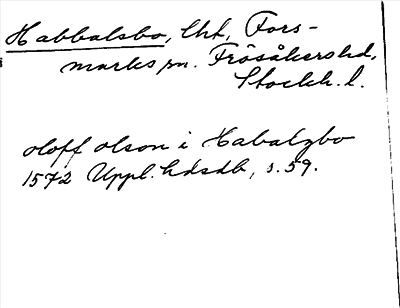 Habbalsbo, Uht, Fors-
marks sn. Frösåkers hd,
Stockh. l.
oloff olson i Habalzbo
1572 Uppl. hdsdb, s. 59.